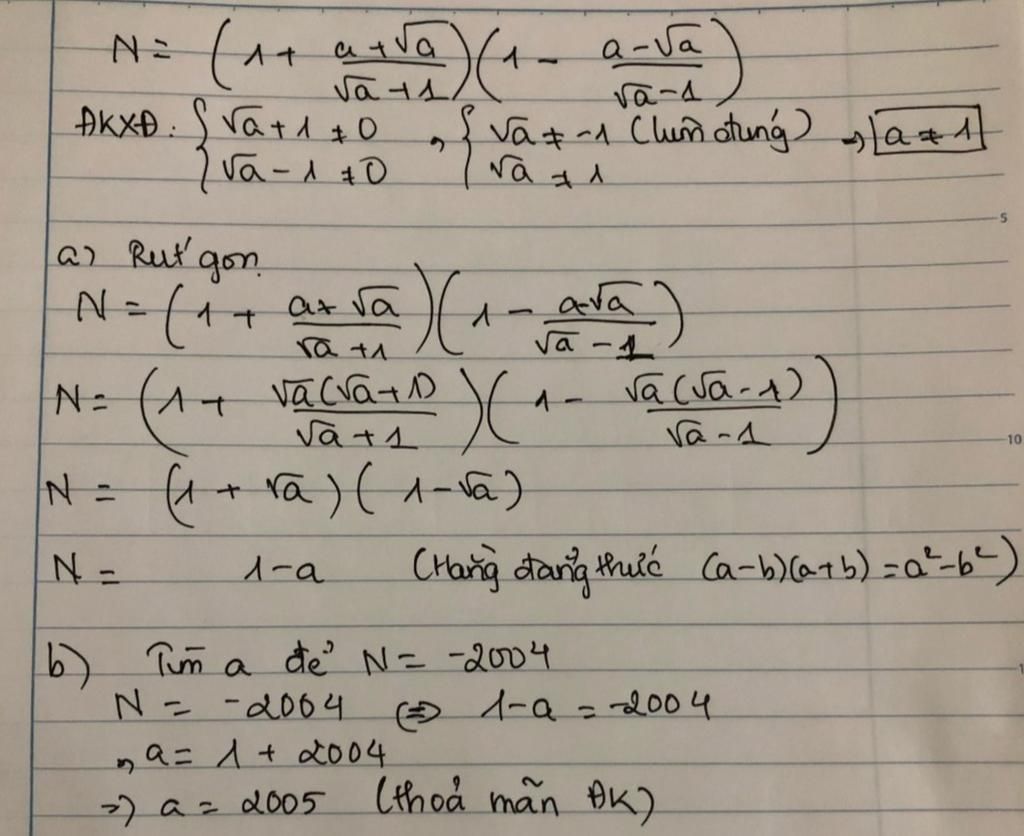 N = (1 + (a+√a)/(√a+1))(1 − (a−√a)/(√a−1))
ĐKXĐ: {√a+1 ≠ 0 , {√a ≠ -1 (luôn đúng) → a ≠ 1
{√a − 1 ≠ 0 {√a ≠ 1
5
a) Rút gọn
N = (1 + (a+√a)/(√a+1))(1 − (a-√a)/(√a−1))
N = (1 + √a(√a+1)/(√a+1))(1 − √a(√a−1)/(√a−1))
10
N = (1 + √a)(1−√a)
N = 1−a (Hằng đẳng thức (a−b)(a+b) = a²−b²)
b) Tìm a để N = -2004
N = -2004 ⇔ 1−a = -2004
, a = 1 + 2004
⇒ a = 2005 (thoả mãn ĐK)